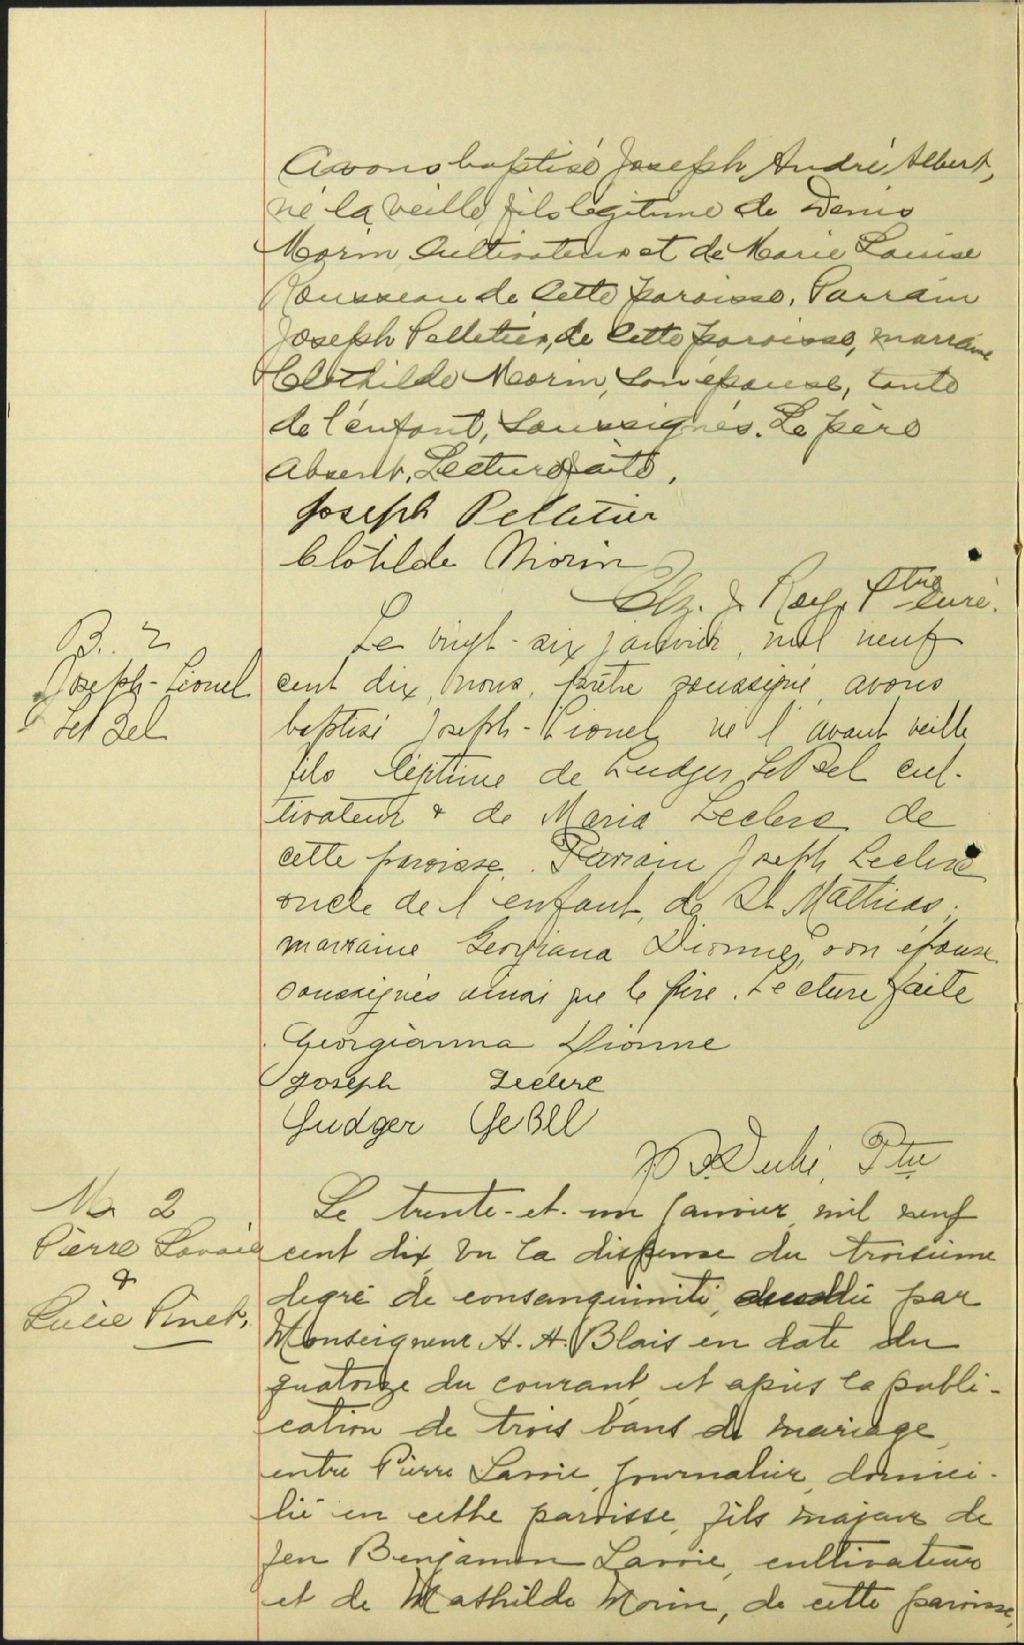 avons baptisé Joseph André Albert,
né la veille, fils légitime de Denis
Morin Cultivateur et de Marie Louise
Rousseau de cette paroisse. Parrain
Joseph Pelletier, de cette paroisse, marraine
Clothilde Morin, son épouse, tante
de l'enfant, soussignés. Le père
absent. Lecture faite.
Joseph Pelletier
Clotilde Morin
Elz. J. Roy, Ptre curé.
B. 2
Joseph-Lionel
LeBel
Le vingt-six janvier, mil neuf
cent dix, nous, prêtre soussigné, avons
baptisé Joseph-Lionel, né l'avant veille
fils légitime de Ludger LeBel cul-
tivateur & de Maria Leclerc de
cette paroisse. Parrain Joseph Leclerc
oncle de l'enfant, de St Mathias;
marraine Georgiana Dionne, son épouse
soussignés ainsi que le père. Lecture faite
Georgianna Dionne
Joseph Leclerc
Ludger LeBEL
Dubé, Ptre
M. 2
Pierre Lavoie
&
Lucie Pinet.
Le trente-et-un janvier mil neuf
cent dix, vu la dispense du troisième
degré de consanguinité, par
Monseigneur A. A. Blais en date du
quatorze du courant et après la publi-
cation de trois bans de mariage
entre Pierre Lavoie, journalier, domici-
lié en cette paroisse, fils majeur de
feu Benjamin Lavoie, cultivateur
et de Mathilde Morin, de cette paroisse,